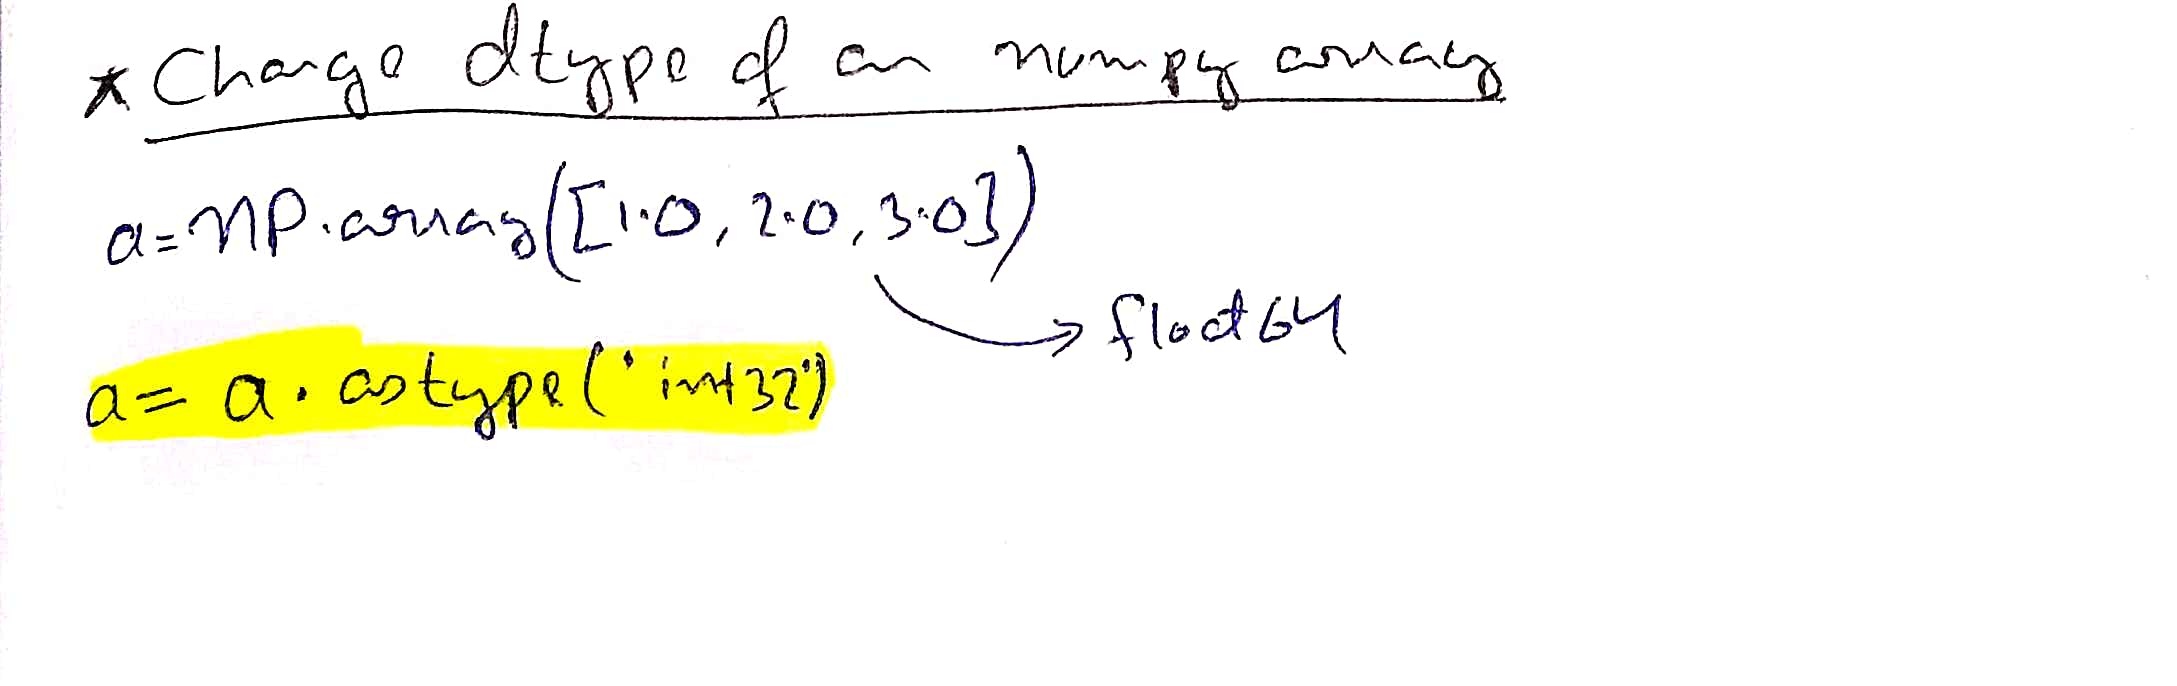 * Change dtype of an numpy array
a=np.array([1.0, 2.0, 3.0])
→ float64
a= a.astype('int32')